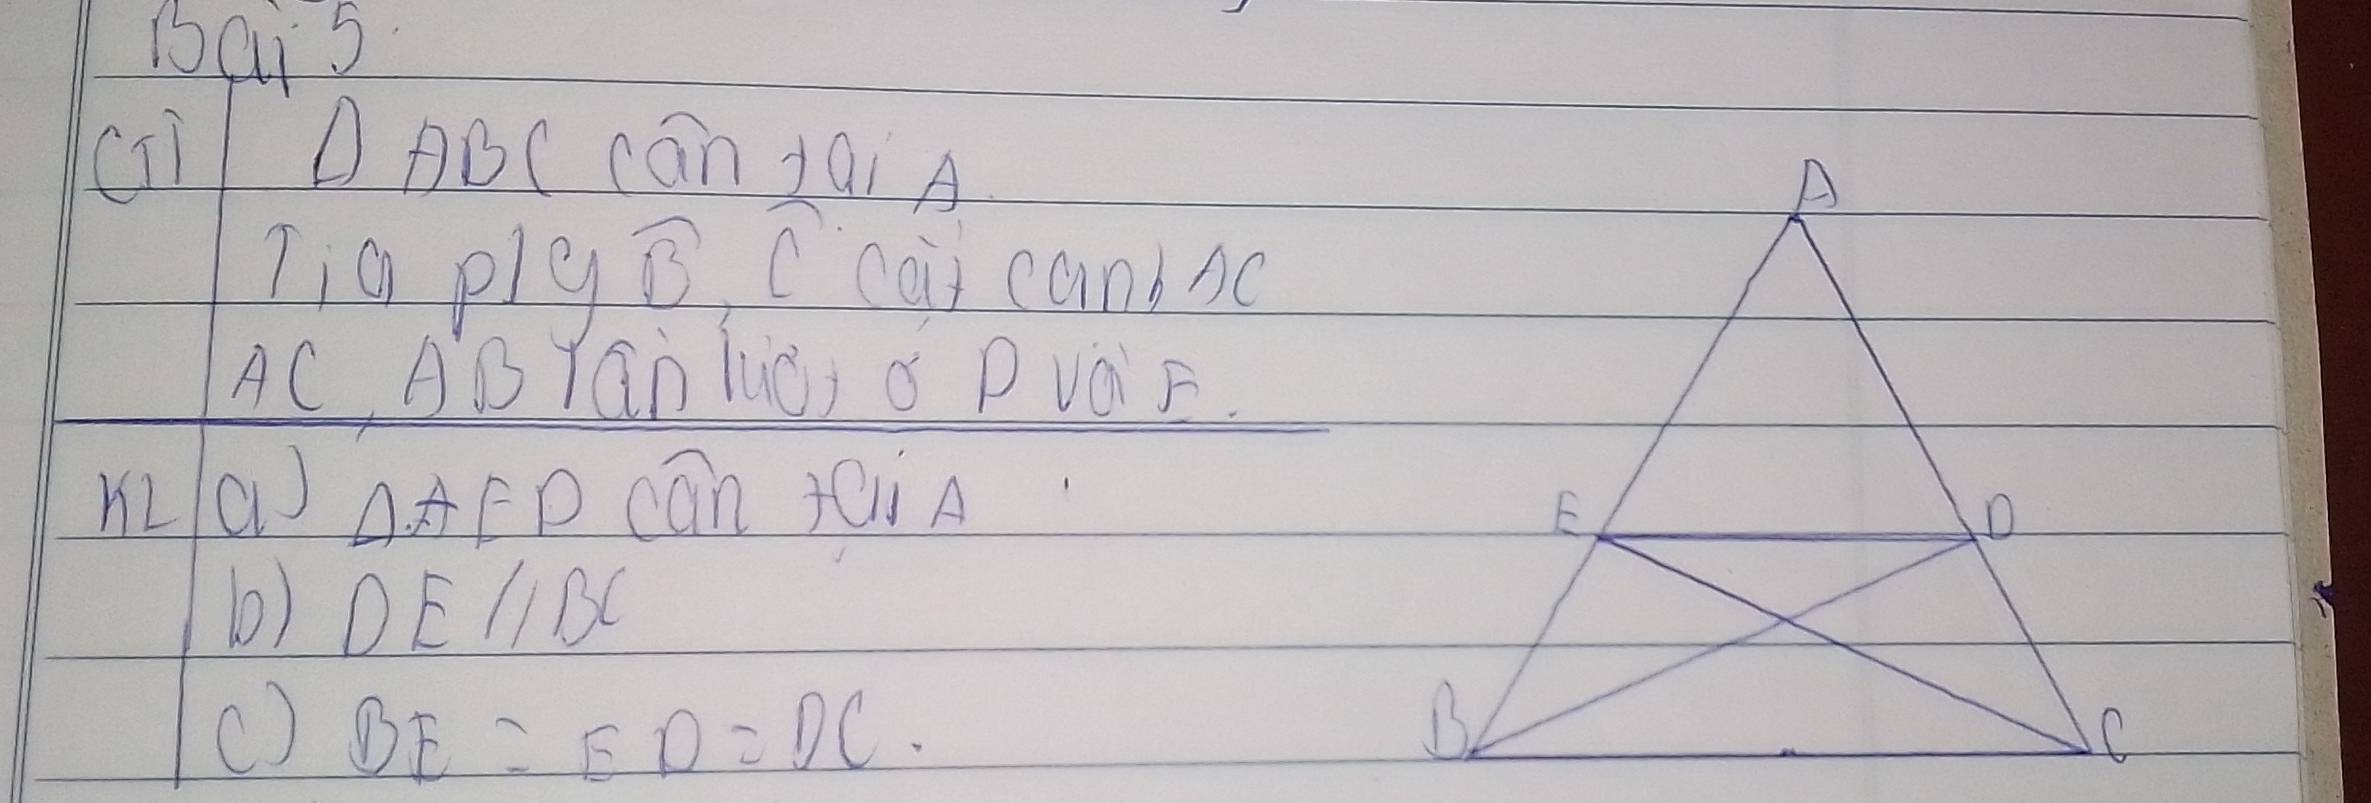 Bài 5
GT Δ ABC cân tại A.
Tia p/g B̂, Ĉ cắt cạnh AC
AC, AB lần lượt ở D và E.
KL a) Δ AED cân tại A
b) DE // BC
c) BE = ED = DC.
A
E D
B C